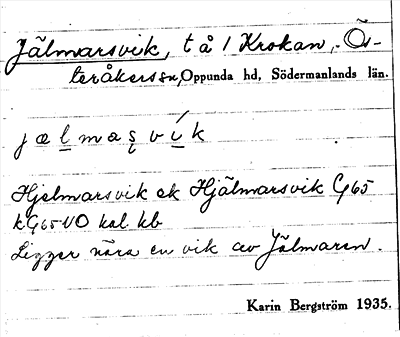 Jälmarsvik, t å 1 Krokan, Ös-
teråkers sn, Oppunda hd, Södermanlands län.
jælmasvík
Hjelmarsvik ek Hjälmarsvik G 65
k G 65 VO kal. kb
Ligger nära en vik av Jälmaren.
Karin Bergström 1935.